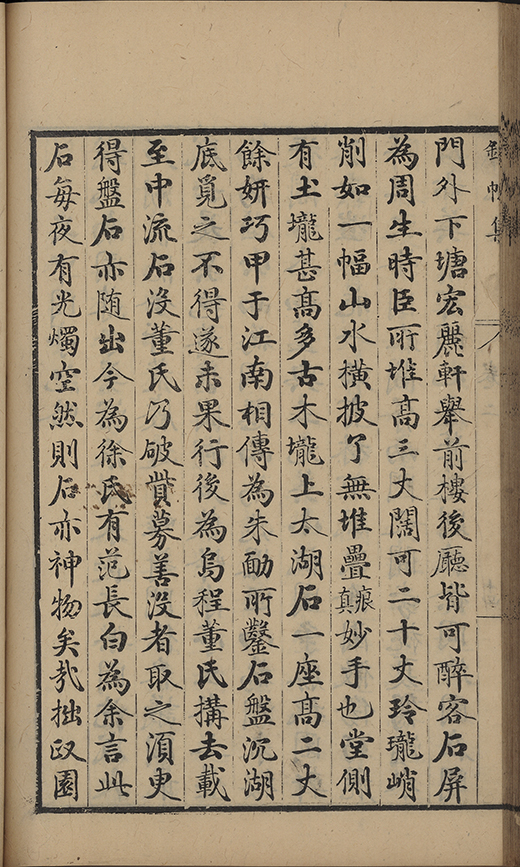 錦帆集
門外下塘宏麗軒舉前樓後廳皆可醉客石屏
為周生時臣所堆高三丈闊可二十丈玲瓏峭
削如一幅山水橫披了無堆疊痕真妙手也堂側
有土壠甚高多古木壠上太湖石一座高二丈
餘妍巧甲于江南相傳為朱勔所鑿石盤沉湖
底覓之不得遂未果行後為烏程董氏搆去載
至中流石沒董氏乃破貲募善沒者取之湏臾
得盤石亦随出今為徐氏有范長白為余言此
石每夜有光燭空然則石亦神物矣㢤拙政園